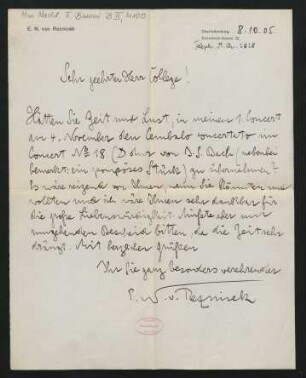 Mus. Nachl. F. Busoni B II, 4100
E. N. von Reznicek
Charlottenburg
8.10.05
Sehr geehrter Herr College!
Hätten Sie Zeit und Lust, in meinem 1. Concert
am 4. November den Cembalo concertato im
Concert No 18 (D dur von J. S. Bach) nebenbei
bemerkt: ein pompöses Stück) zu übernehmen?
Es wäre reizend von Ihnen, wenn Sie könnten und
wollten und ich wäre Ihnen sehr dankbar für
die große Liebenswürdigkeit. Müßte aber um
umgehenden Bescheid bitten, da die Zeit sehr
drängt. Mit herzlichen Grüßen
Ihr Sie ganz besonders verehrender
E. N. v. Reznicek